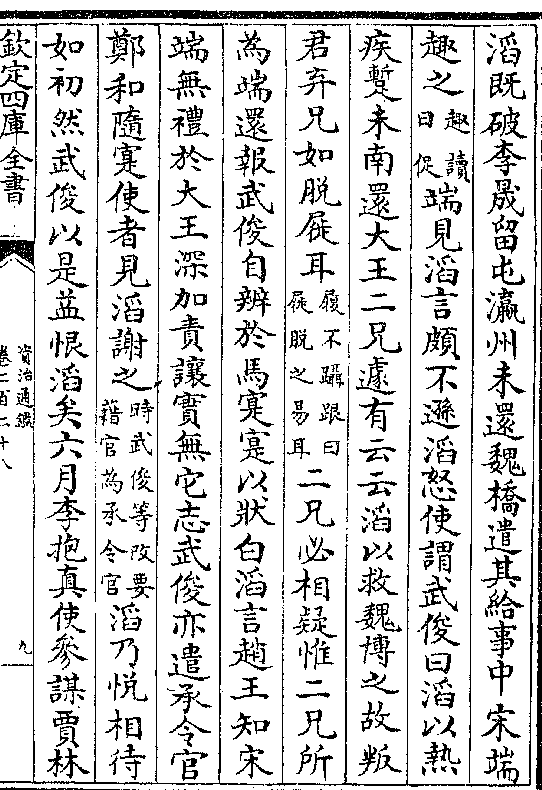 滔既破李晟留屯瀛州未還魏橋遣其給事中宋端
趣之趣讀曰促端見滔言頗不遜滔怒使謂武俊曰滔以熱
疾蹔未南還大王二兄遽有云云滔以救魏博之故叛
君弃兄如脱屣耳履不躡跟曰屣脱之易耳二兄必相疑惟二兄所
為端還報武俊自辨於馬寔寔以狀白滔言趙王知宋
端無禮於大王深加責讓實無它志武俊亦遣承令官
鄭和隨寔使者見滔謝之時武俊等改要藉官為承令官滔乃悦相待
如初然武俊以是益恨滔矣六月李抱真使參謀賈林
欽定四庫全書
資治通鑑
卷二百二十八
九